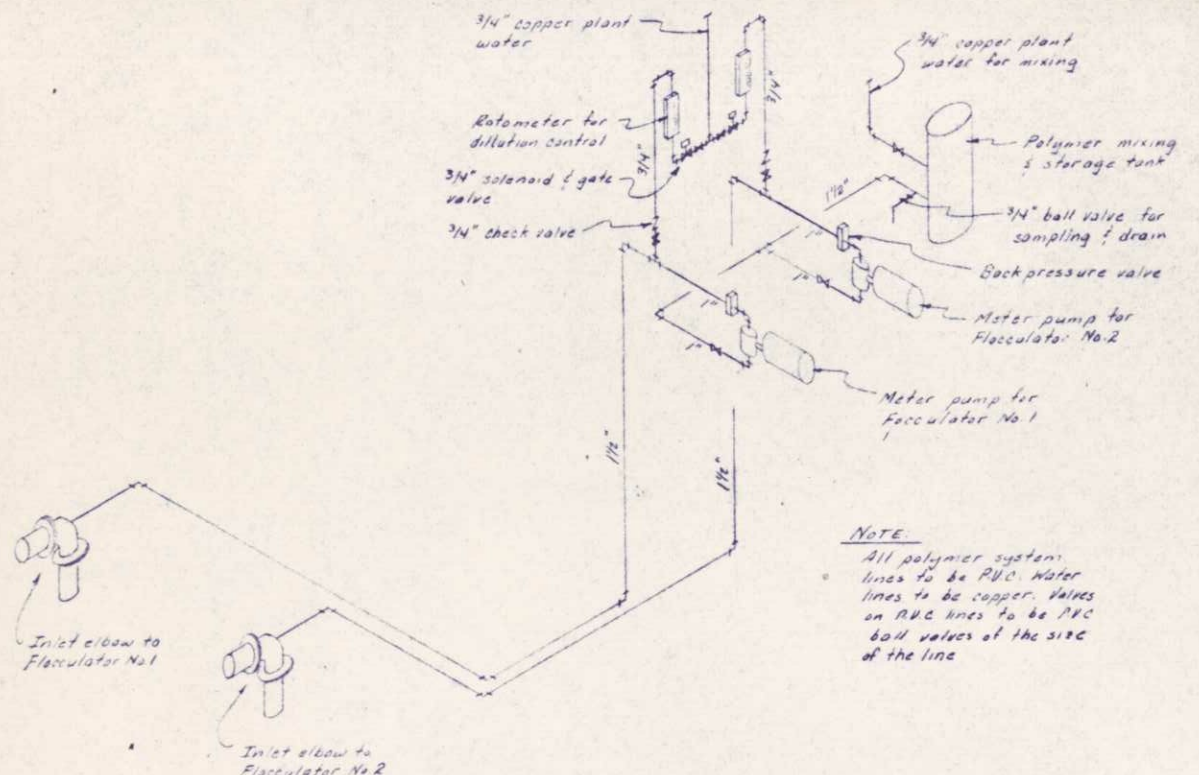 3/4" copper plant
water
3/4" copper plant
water for mixing
Rotometer for
dillution control
3/4"
3/4"
Polymer mixing
& storage tank
3/4" solenoid & gate
valve
1 1/2"
3/4" ball valve for
sampling & drain
3/4" check valve
1"
Backpressure valve
1"
1"
Meter pump for
Flocculator No. 2
1"
Meter pump for
Focculator No. 1
1 1/2"
1 1/2"
NOTE:
All polymer system
lines to be P.V.C. Water
lines to be copper. Valves
on P.V.C lines to be P.V.C
ball valves of the size
of the line
Inlet elbow to
Flocculator No. 1
Inlet elbow to
Flocculator No. 2